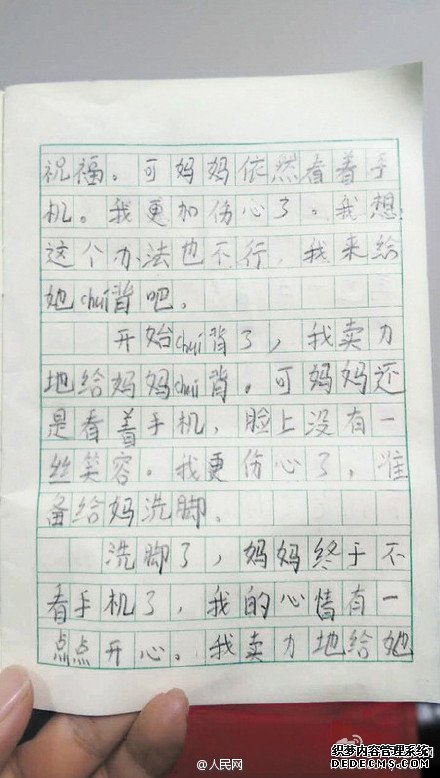 祝福。可妈妈依然看着手
机。我更加伤心了。我想:
这个办法也不行,我来给
她chuí背吧。
开始chuí背了,我卖力
地给妈妈chuí背。可妈妈还
是看着手机,脸上没有一
丝笑容。我更伤心了,准
备给妈洗脚。
洗脚了,妈妈终于不
看手机了,我的心情有一
点点开心。我卖力地给她
@人民网
织梦内容管理系统
DEDECMS.COM